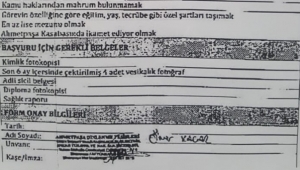 Kamu haklarından mahrum bulunmamak
Görevin özelliğine göre eğitim, yaş, tecrübe gibi özel şartları taşımak
En az lise mezunu olmak
Ahmetpaşa Kasabasında ikamet ediyor olmak
BAŞVURU İÇİN GEREKLİ BELGELER
Kimlik fotokopisi
Son 6 ay içersinde çektirilmiş 1 adet vesikalık fotoğraf
Adli sicil belgesi
Diploma fotokopisi
Sağlık raporu
FORM ONAY BİLGİLERİ
Tarih:
Adı Soyadı:
Unvanı:
Kaşe/İmza: